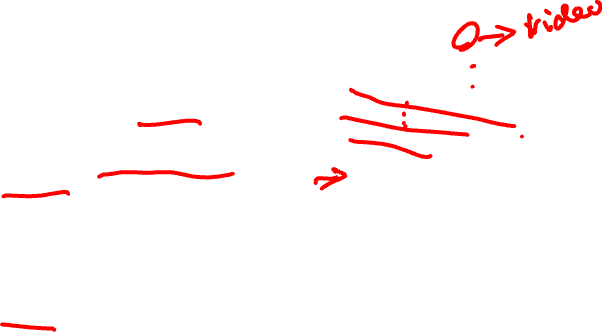 Q → video